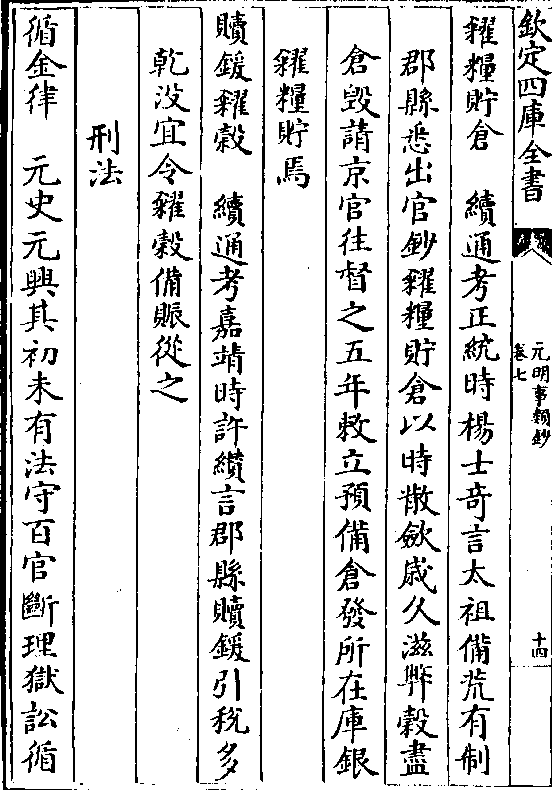 欽定四庫全書
元明事類鈔
卷七
十四
糴糧貯倉　續通考正統時楊士奇言太祖備荒有制
郡縣悉出官鈔糴糧貯倉以時散斂歲久滋弊穀盡
倉毁請京官往督之五年敕立預備倉發所在庫銀
糴糧貯焉
贖鍰糴穀　續通考嘉靖時許讚言郡縣贖鍰引稅多
乾没宜令糴穀備賑從之
刑法
循金律　元史元興其初未有法守百官斷理獄訟循